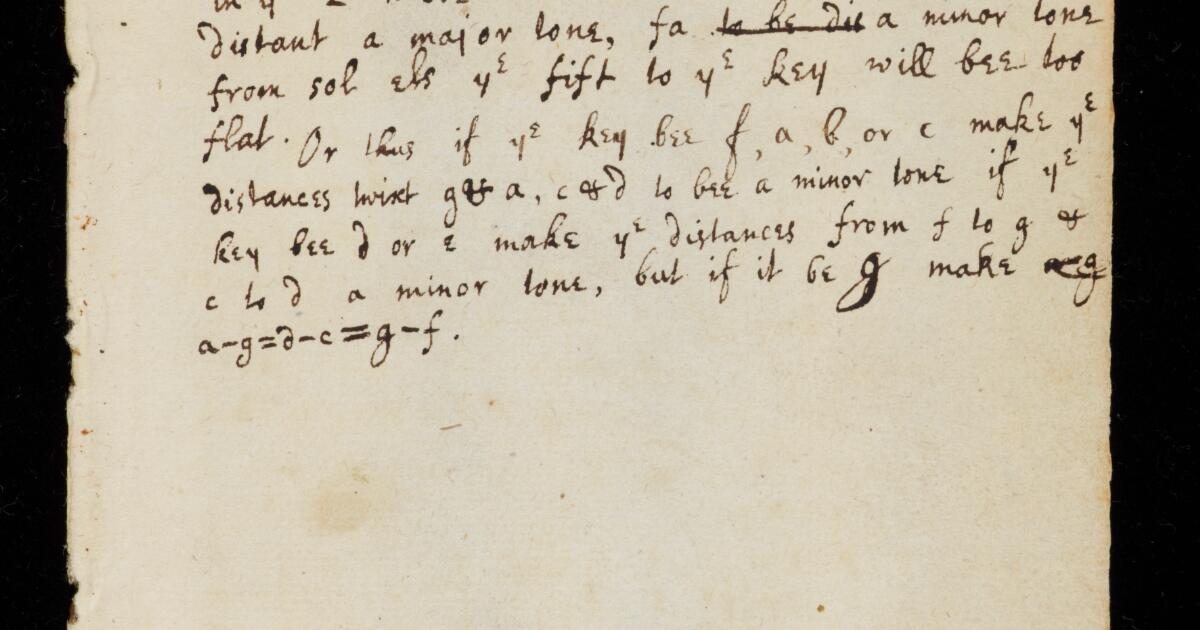 distant a major tone, fa to be dis a minor tone
from sol els yᵉ fift to yᵉ key will bee too
flat. Or thus if yᵉ key bee f, a, b, or c make yᵉ
distances twixt g & a, c & d to bee a minor tone if yᵉ
key bee d or e make yᵉ distances from f to g &
c to d a minor tone, but if it be g make a-g
a-g=d-c=g-f.